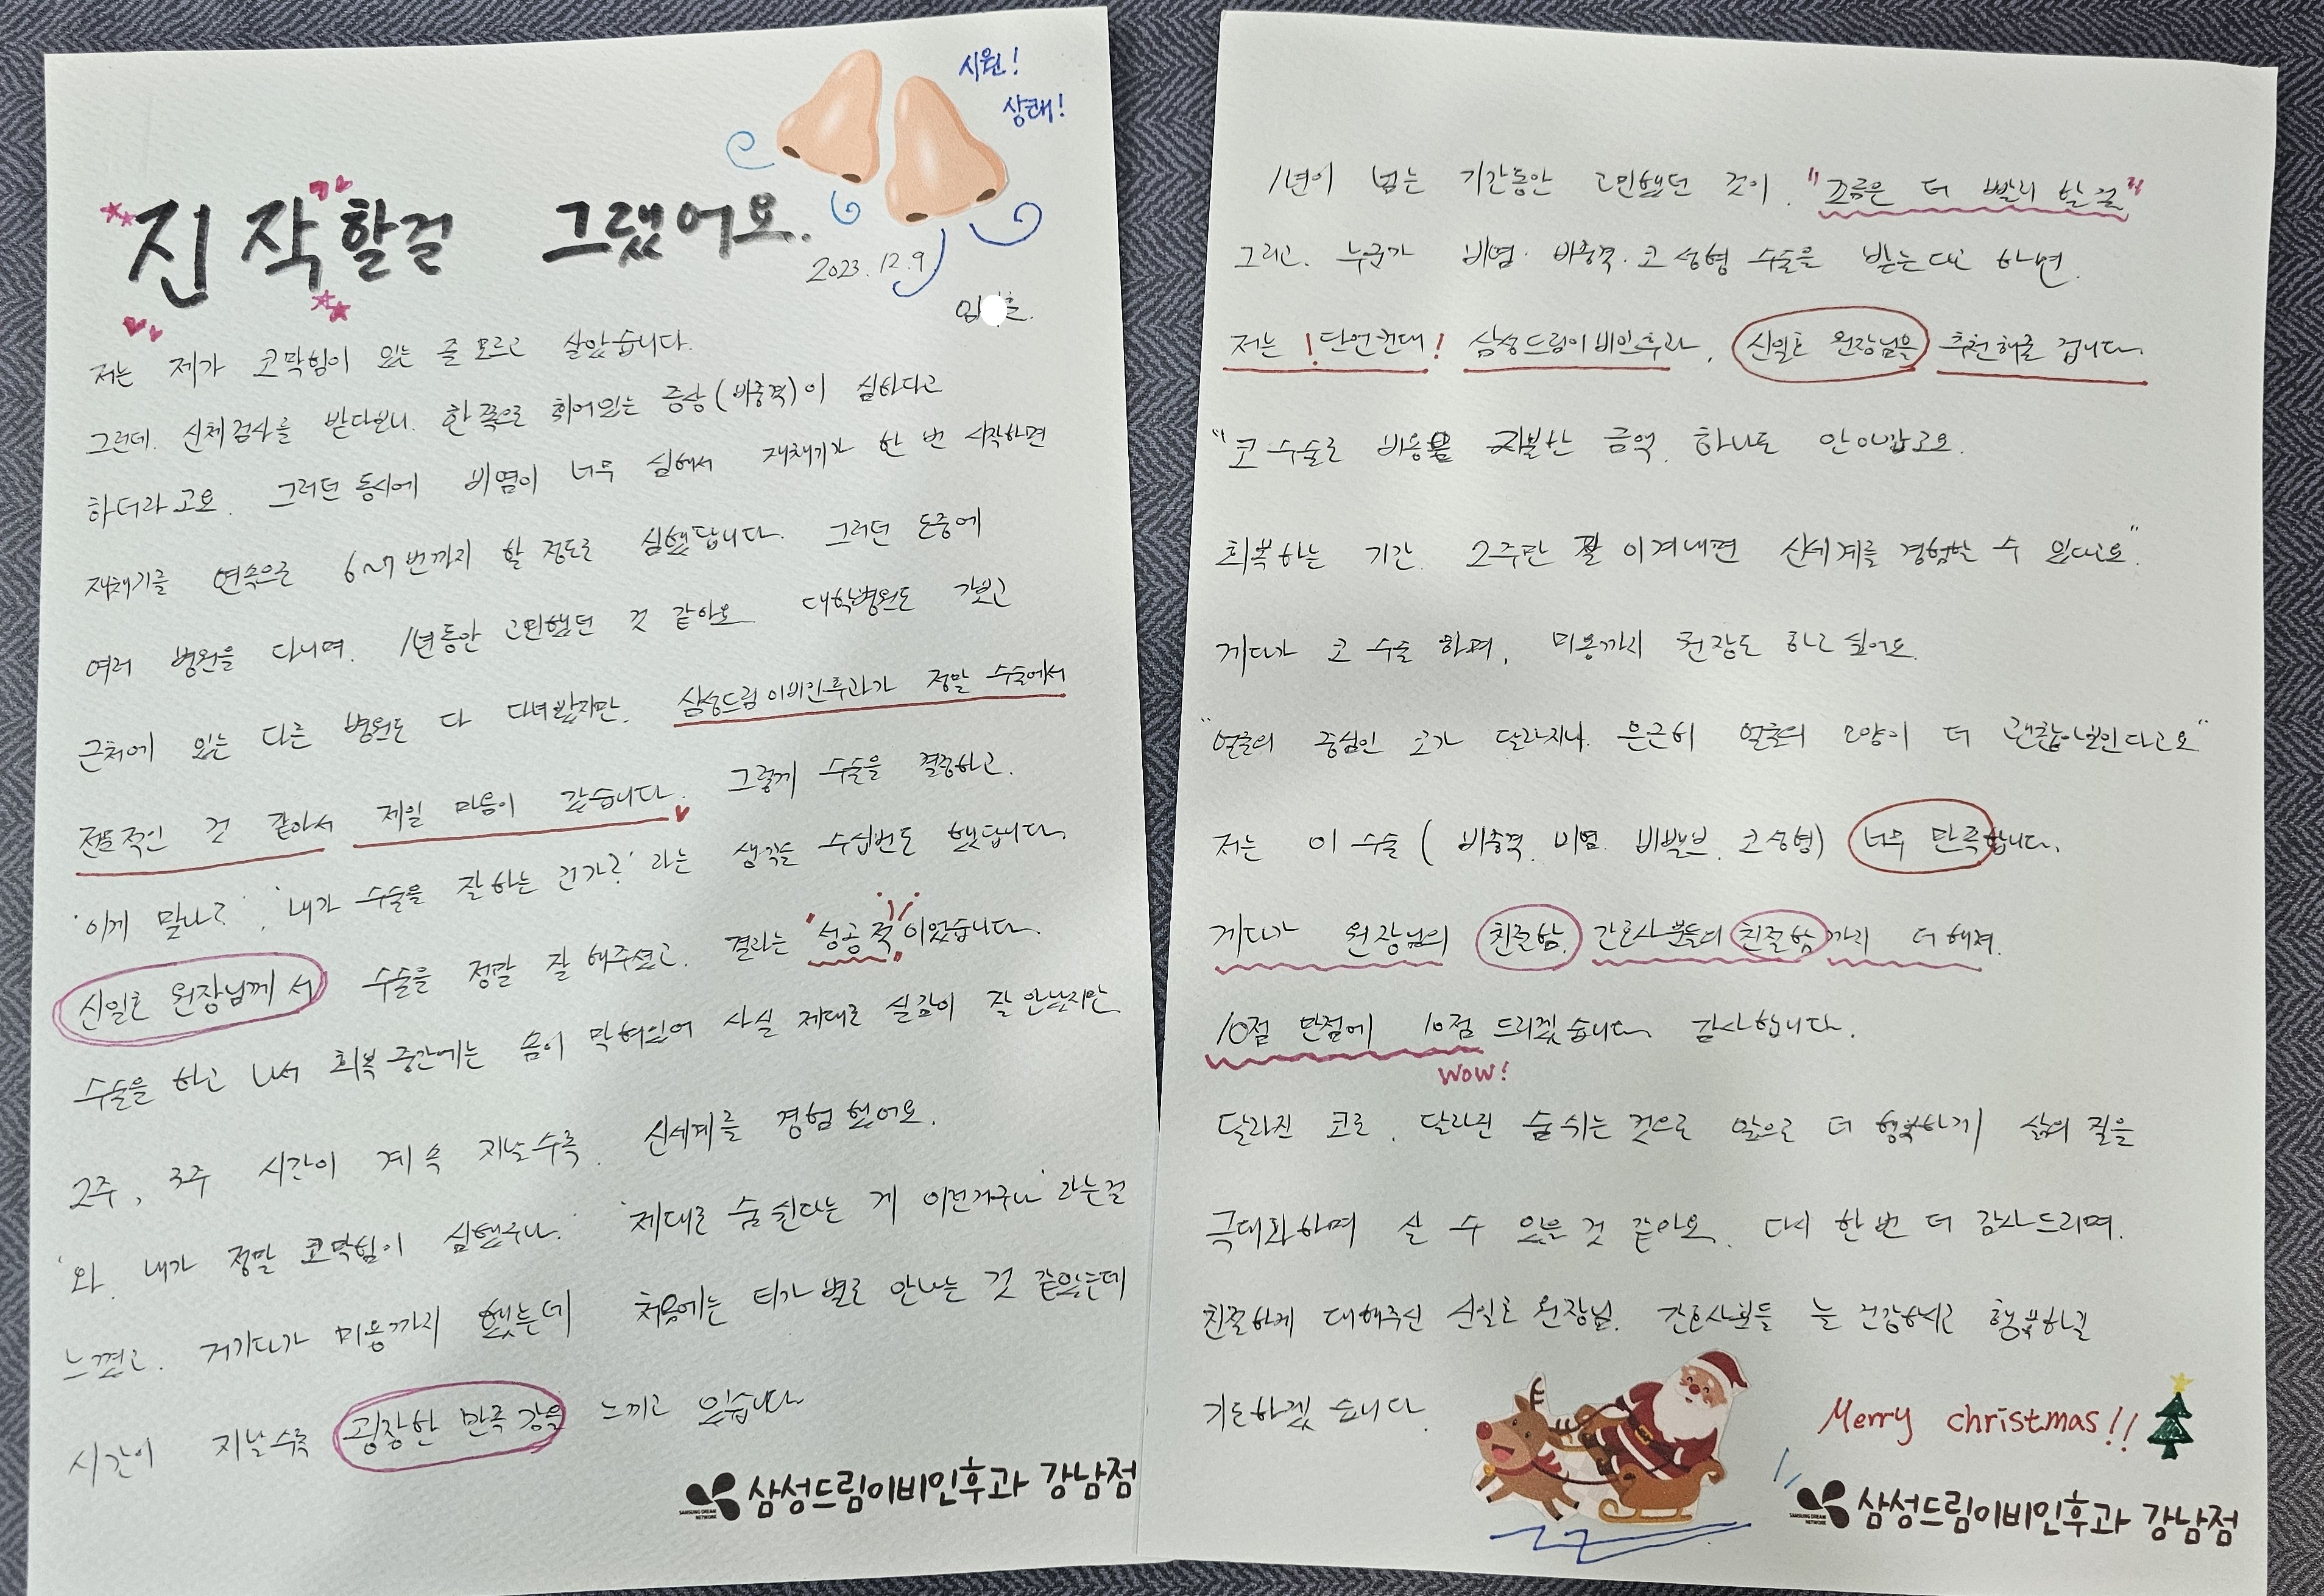 시원!
상태!
진작할걸 그랬어요.
2023. 12. 9
임
저는 제가 코막힘이 있는 줄 모르고 살았습니다.
그런데. 신체검사를 받다보니. 한쪽으로 휘어있는 증상(비중격)이 심하다고
하더라고요. 그러던 동시에 비염이 너무 심해서 재채기가 한 번 시작하면
재채기를 연속으로 6~7번까지 할 정도로 심했답니다. 그러던 도중에
여러 병원을 다니며. 1년동안 고민했던 것 같아요. 대학병원도 가보고
근처에 있는 다른 병원도 다 다녀봤지만. 삼성드림이비인후과가 정말 수술에서
전문적인 것 같아서 제일 마음이 갔습니다. 그렇게 수술을 결정하고.
'이게 맞나?', '내가 수술을 잘하는 건가?' 라는 생각을 수십번도 했답니다.
신일호 원장님께서 수술을 정말 잘 해주셨고. 결과는 '성공적'이었습니다.
수술을 하고 나서 회복 중간에는 솜이 막혀있어 사실 제대로 실감이 잘 안났지만
2주, 3주 시간이 계속 지날수록. 신세계를 경험했어요.
'와. 내가 정말 코막힘이 심했구나.' '제대로 숨쉰다는 게 이런거구나' 라는걸
느꼈고. 거기다가 미용까지 했는데 처음에는 티가 별로 안나는 것 같았는데
시간이 지날수록 굉장한 만족감을 느끼고 있습니다
SAMSUNG DREAM NETWORK 삼성드림이비인후과 강남점
1년이 넘는 기간동안 고민했던 것이. "조금은 더 빨리 할걸"
그리고. 누군가 비염. 비중격. 코성형 수술을 받는다고 하면.
저는 !단언컨대! 삼성드림이비인후과, 신일호 원장님을 추천해줄 겁니다.
"코 수술로 비용을 지불한 금액, 하나도 안아깝고요.
회복하는 기간. 2주만 잘 이겨내면 신세계를 경험할 수 있다고요".
게다가 코 수술 하며, 미용까지 권장도 하고 싶어요.
"얼굴의 중심인 코가 달라지니. 은근히 얼굴의 모양이 더 괜찮아보인다고요"
저는 이 수술 (비중격. 비염. 비밸브. 코성형) 너무 만족합니다.
게다가 원장님의 친절함. 간호사분들의 친절함까지 더해져.
10점 만점에 10점 드리겠습니다. 감사합니다.
WOW!
달라진 코로, 달라진 숨쉬는 것으로 앞으로 더 행복하게 삶의 질을
극대화하며 살 수 있을 것 같아요. 다시 한번 더 감사드리며.
친절하게 대해주신 신일호 원장님. 간호사분들 늘 건강하시고 행복하길
기도하겠습니다.
Merry christmas!!
SAMSUNG DREAM NETWORK 삼성드림이비인후과 강남점